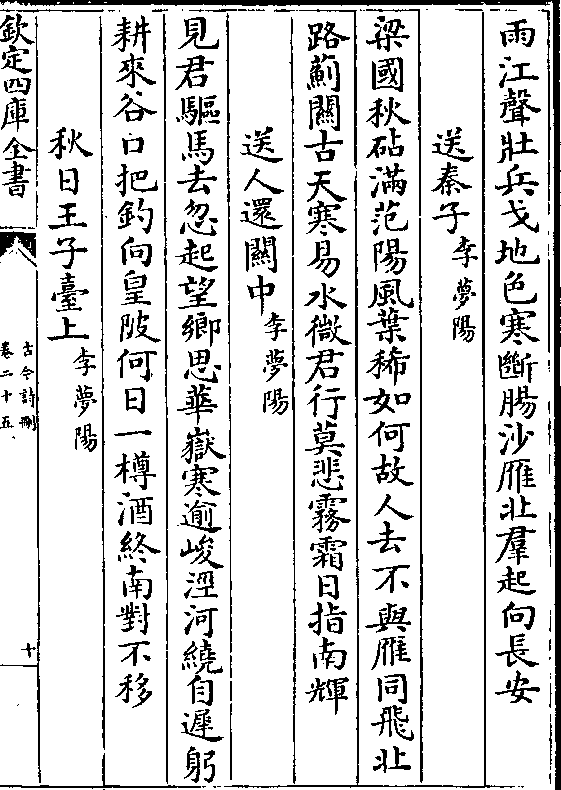 雨江聲壯兵戈地色寒斷腸沙雁北羣起向長安
送秦子李夢陽
梁國秋砧滿范陽風葉稀如何故人去不與雁同飛北
路薊關古天寒易水微君行莫悲霧霜日指南輝
送人還關中李夢陽
見君驅馬去忽起望鄉思華嶽寒逾峻涇河繞自遲躬
耕來谷口把釣向皇陂何日一樽酒終南對不移
秋日王子臺上李夢陽
欽定四庫全書
古今詩刪
卷二十五
十